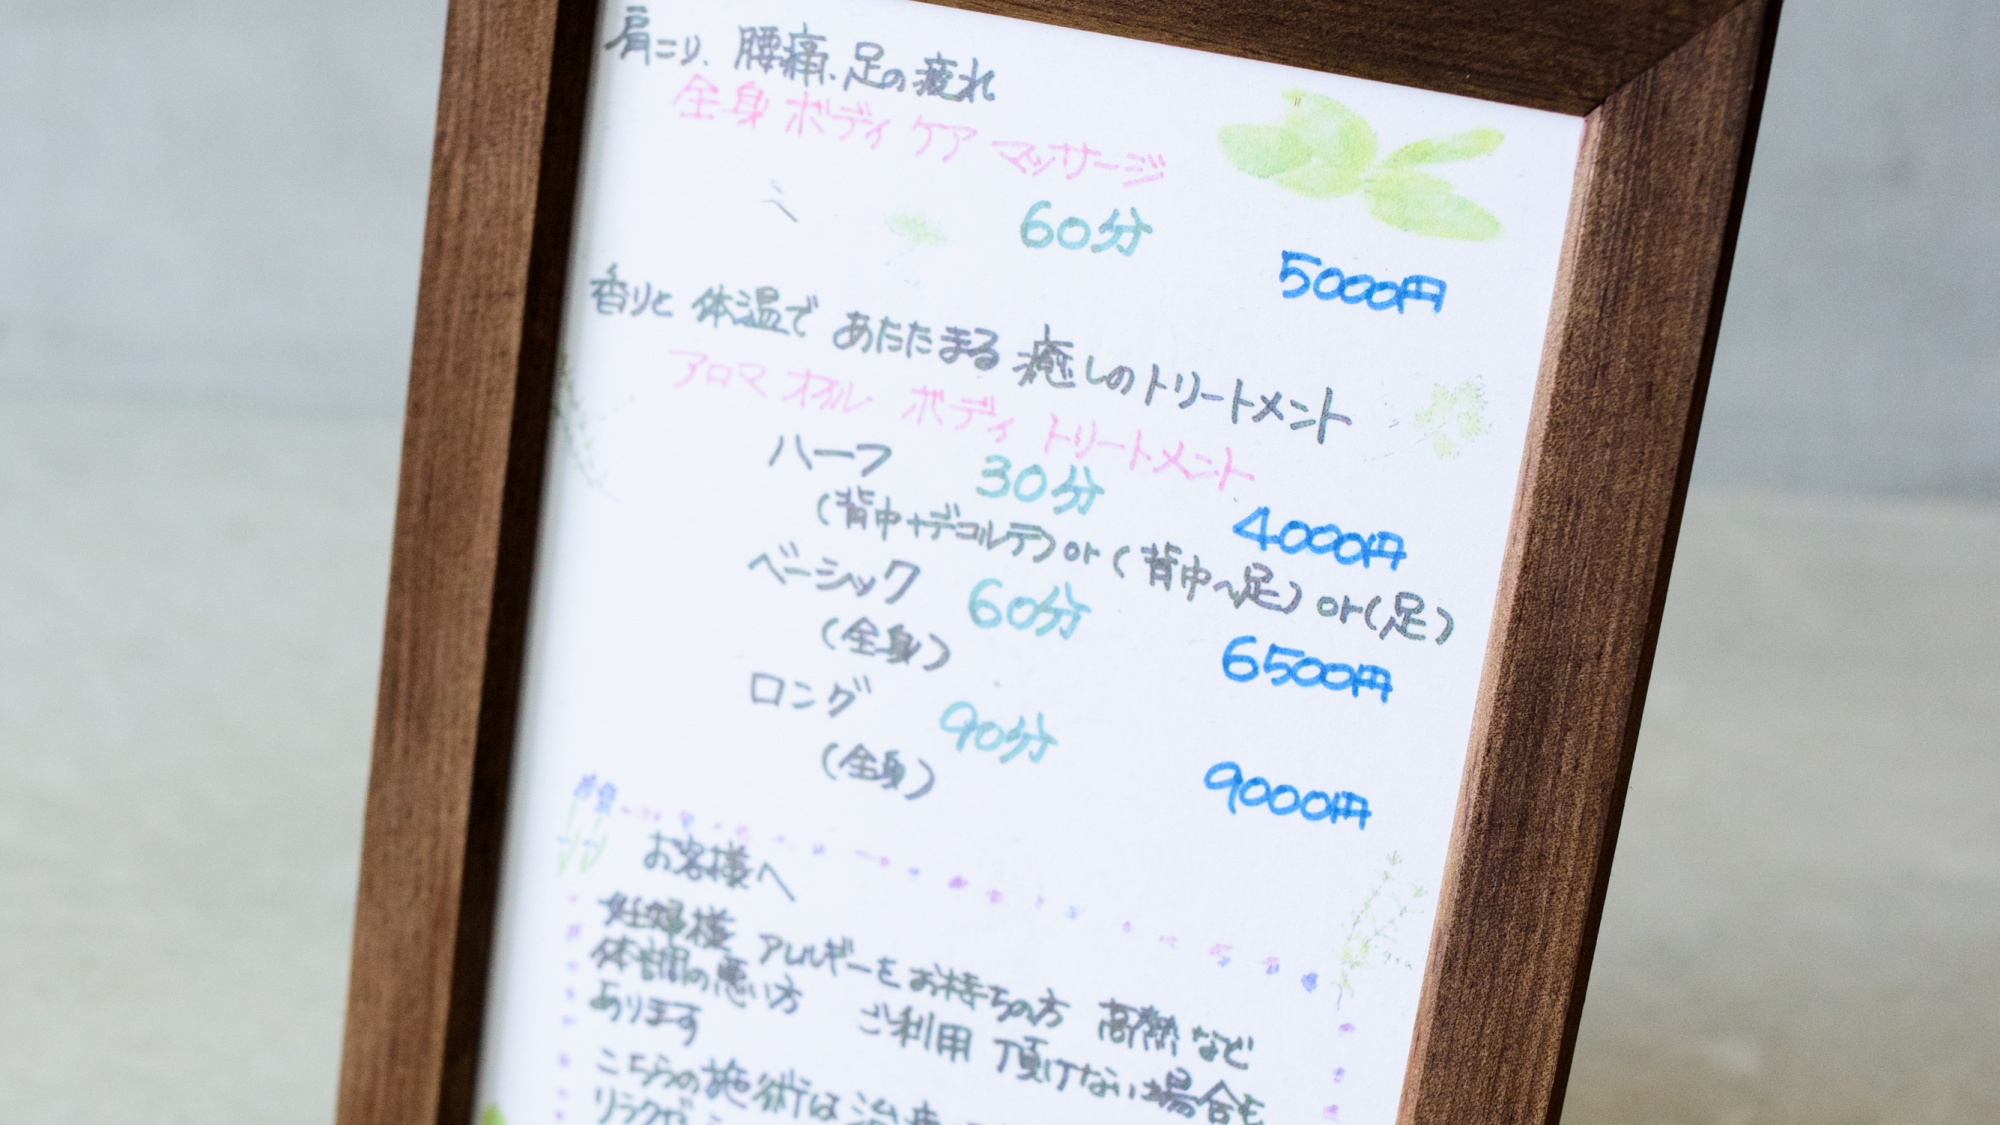 肩こり、腰痛、足の疲れ
全身 ボディ ケア マッサージ
60分
5000円
香りと 体温で あたたまる 癒しのトリートメント
アロマ オイル ボディ トリートメント
ハーフ 30分 4000円
(背中+デコルテ) or (背中〜足) or (足)
ベーシック 60分 6500円
(全身)
ロング 90分 9000円
(全身)
お客様へ
妊婦様 アレルギーをお持ちの方 高熱など
体調の悪い方 ご利用 頂けない場合も
あります
こちらの施術は治療
リラクゼー